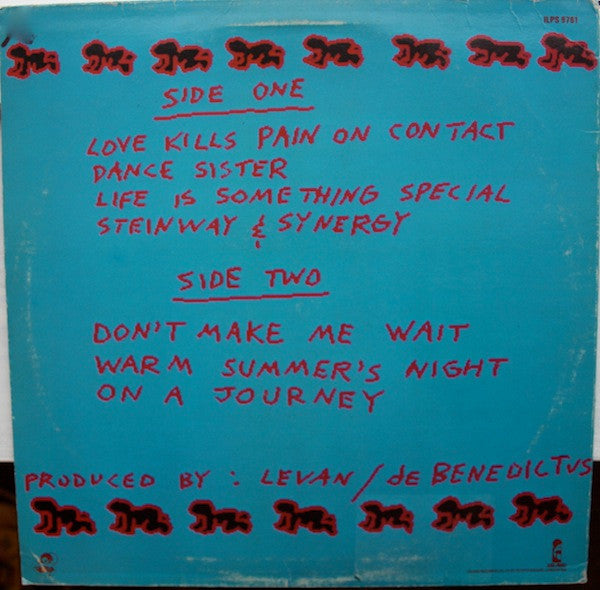 ILPS 9761
SIDE ONE
LOVE KILLS PAIN ON CONTACT
DANCE SISTER
LIFE IS SOMETHING SPECIAL
STEINWAY & SYNERGY
SIDE TWO
DON'T MAKE ME WAIT
WARM SUMMER'S NIGHT
ON A JOURNEY
PRODUCED BY : LEVAN / de BENEDICTUS